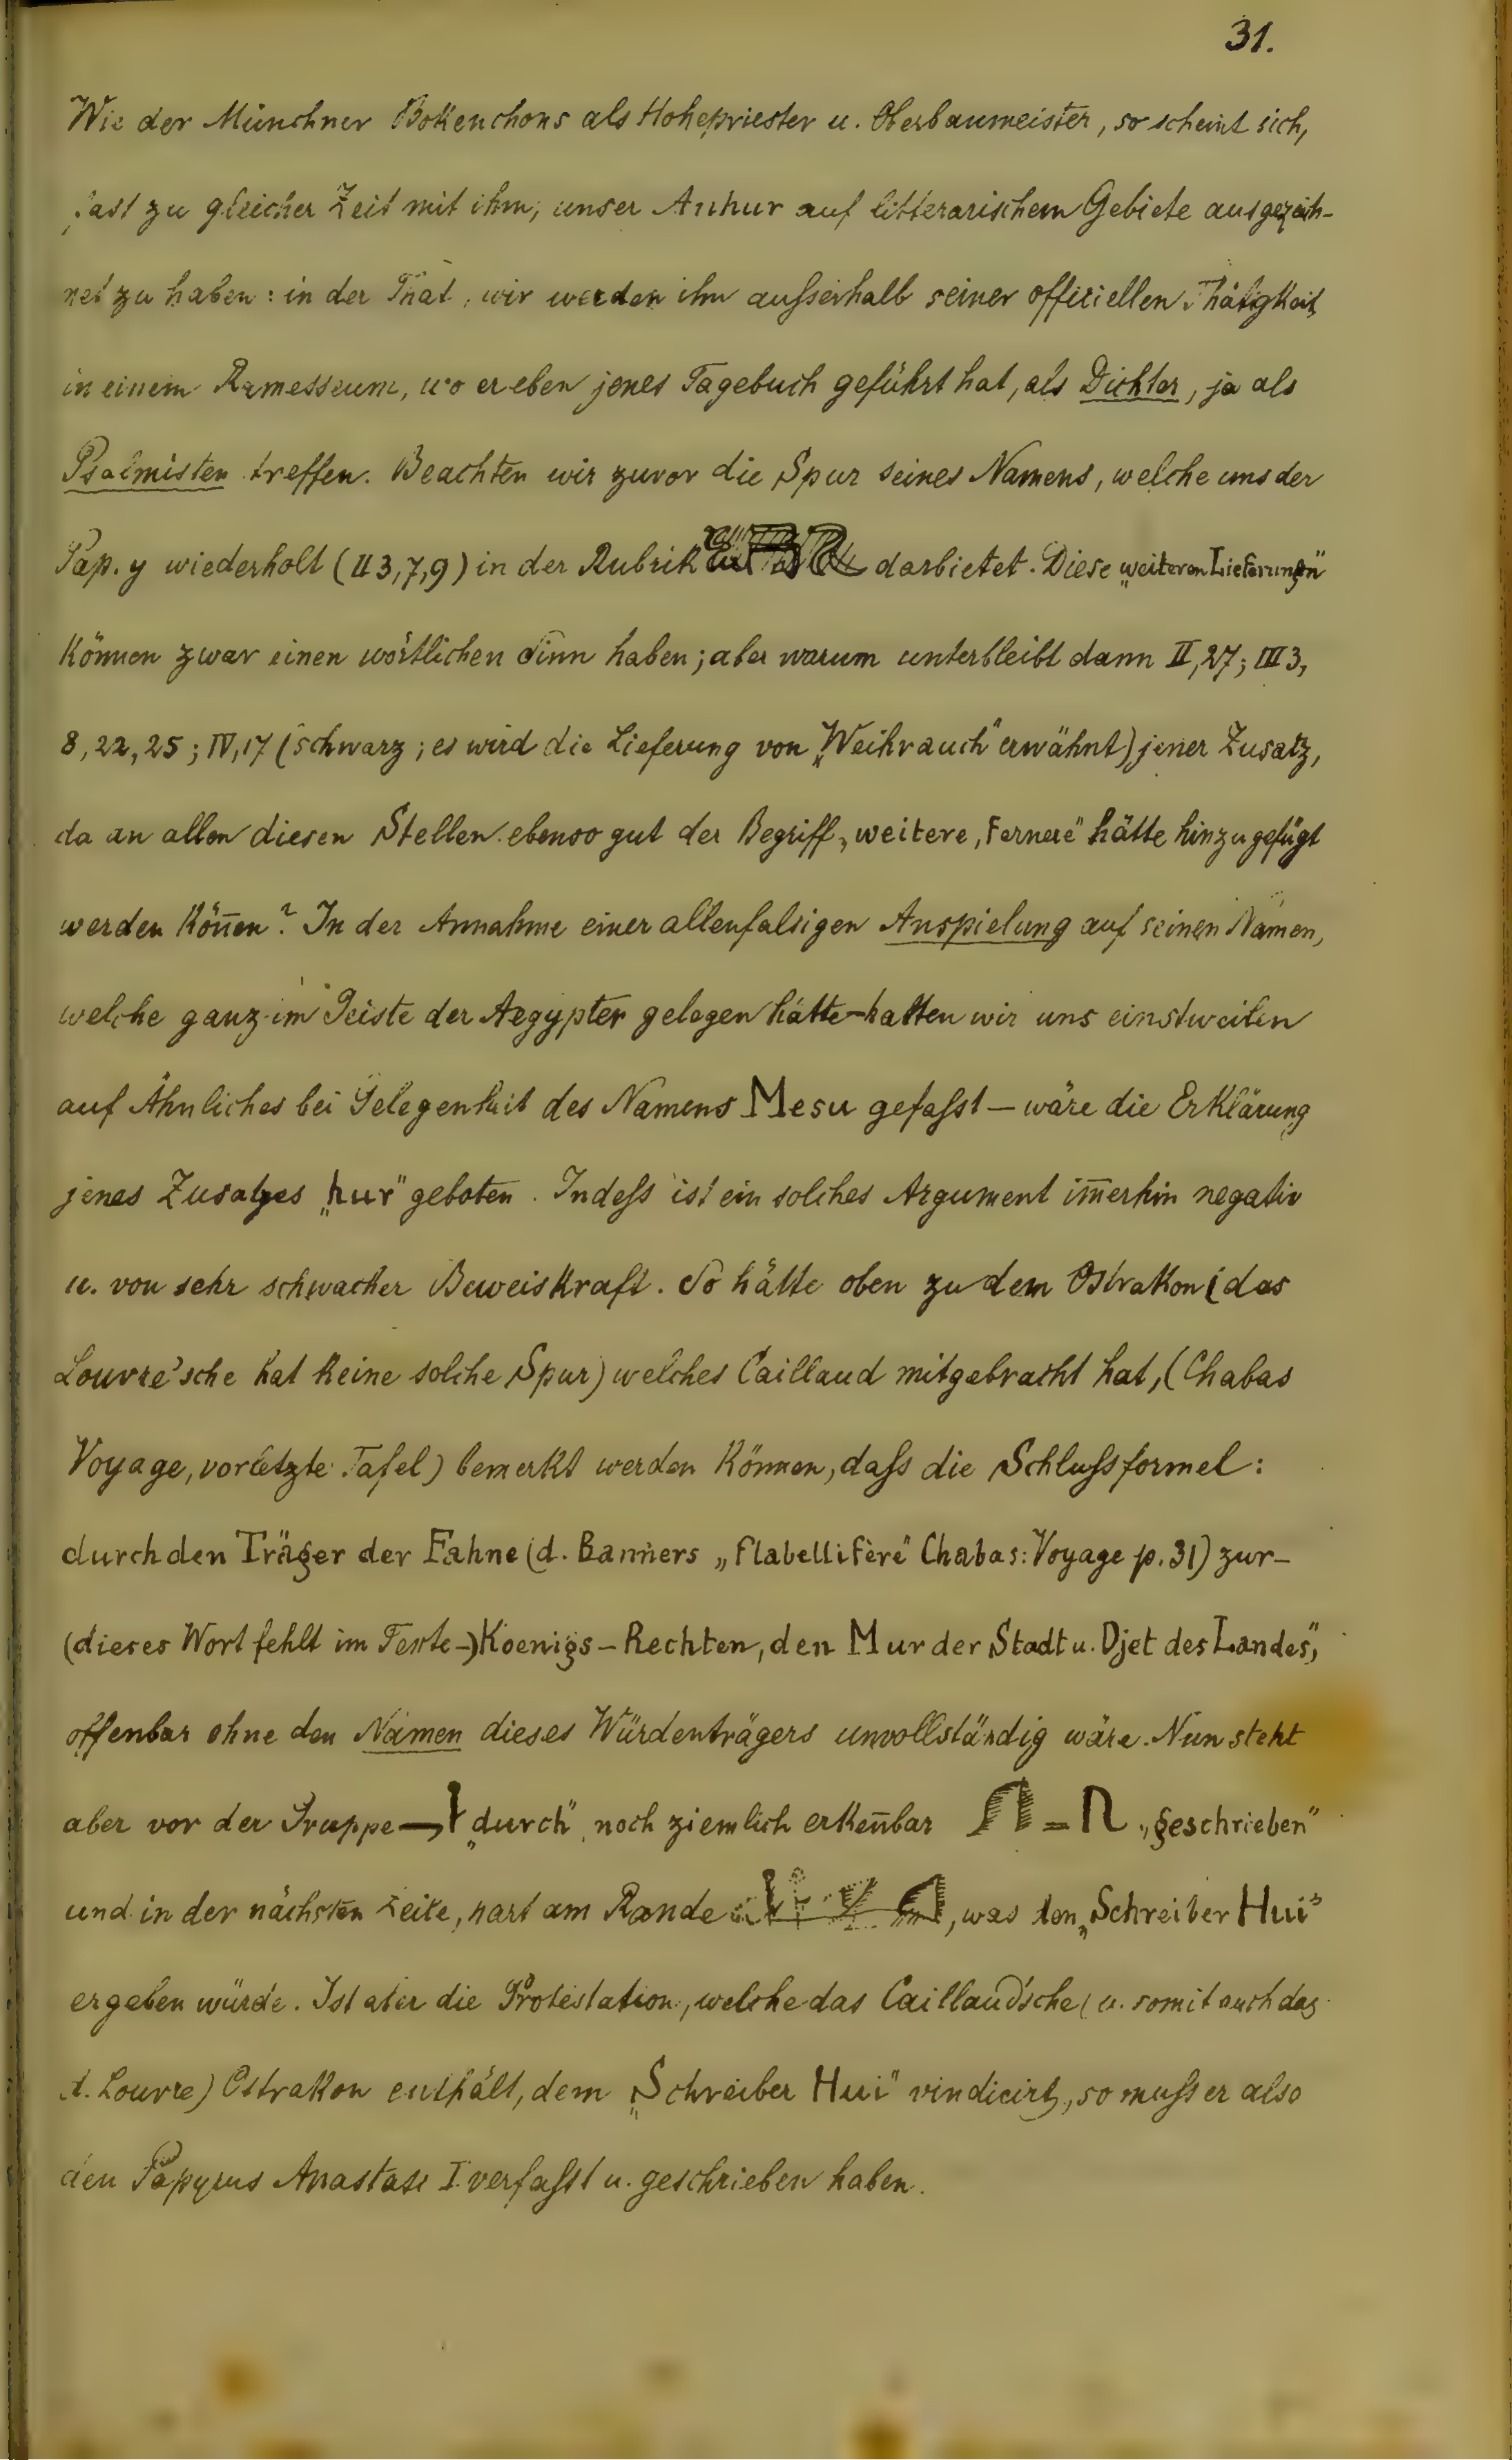 31.
Wie der Münchner Bokenchons als Hohepriester u. Oberbaumeister, so scheint sich,
fast zu gleicher Zeit mit ihm, unser Anhur auf litterarischem Gebiete ausgezeich-
net zu haben: in der That, wir werden ihn ausserhalb seiner officiellen Thätigkeit
in einem Ramesseum, wo er eben jenes Tagebuch geführt hat, als Dichter, ja als
Psalmisten treffen. Beachten wir zuvor die Spur seines Namens, welche uns der
Pap. y wiederholt (II 3,7,9) in der Rubrik darbietet. Diese „weiteren Lieferungen“
können zwar einen wörtlichen Sinn haben; aber warum unterbleibt dann II,27; III 3,
8,22,25; IV,17 (schwarz; es wird die Lieferung von „Weihrauch“ erwähnt) jener Zusatz,
da an allen diesen Stellen ebenso gut der Begriff „weitere, fernere“ hätte hinzugefügt
werden kön̄en? In der Annahme einer allenfalsigen Anspielung auf seinen Namen,
welche ganz im Geiste der Aegypter gelegen hätte – halten wir uns einstweilen
auf Ähnliches bei Gelegenheit des Namens Mesu gefasst – wäre die Erklärung
jenes Zusatzes „hur“ geboten. Indess ist ein solches Argument im̄erhin negativ
u. von sehr schwacher Beweiskraft. So hätte oben zu dem Ostrakon (das
Louvre'sche hat keine solche Spur) welches Caillaud mitgebracht hat, (Chabas
Voyage, vorletzte Tafel) bemerkt werden können, dass die Schlussformel:
durch den Träger der Fahne (d. Banners „flabellifère“ Chabas: Voyage p. 31) zur –
(dieses Wort fehlt im Texte –) Koenigs – Rechten, den Mur der Stadt u. Djet des Landes“,
offenbar ohne den Namen dieses Würdenträgers unvollständig wäre. Nun steht
aber vor der Gruppe „durch“ noch ziemlich erken̄bar = „geschrieben“
und in der nächsten Zeile, hart am Rande , was den „Schreiber Hui“
ergeben würde. Ist aber die Protestation, welche das Caillaud'sche (u. somit auch das
d. Louvre) Ostrakon enthält, dem „Schreiber Hui“ vindicirt, so muss er also
den Papyrus Anastasi I verfasst u. geschrieben haben.